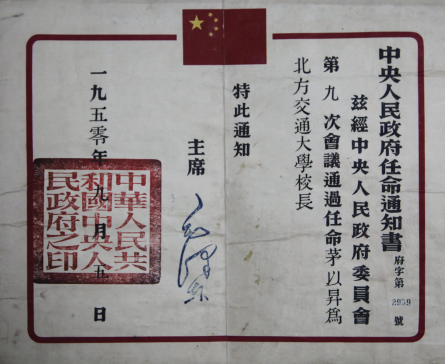 中央人民政府任命通知書
府字第2959號
茲經中央人民政府委員會
第九次會議通過任命茅以昇為
北方交通大學校長
特此通知
主席
毛澤東
一九五零年九月五日
中華人民共和國中央人民政府之印